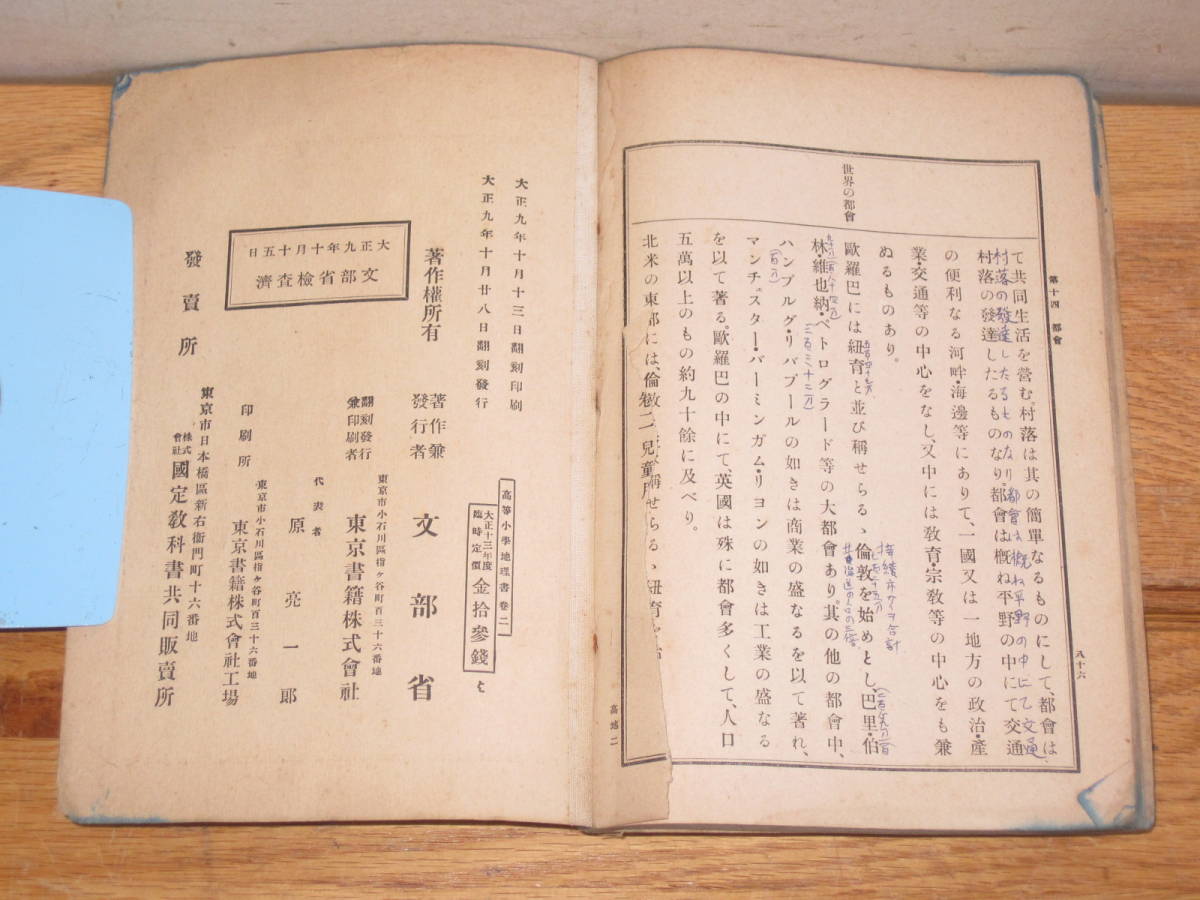 第十四 都會
八十六
世界の都會
て共同生活を營む。村落は其の簡單なるものにして、都會は、
村落の發達したるものなり。都會は概ね平野の中にて交通
村落の發達したるものなり都會は概ね平野の中にて交通
の便利なる河畔・海邊等にありて、一國又は一地方の政治・產
業・交通等の中心をなし、又中には敎育・宗敎等の中心をも兼
ぬるものあり。
歐羅巴には紐育と並び稱せらるゝ倫敦を始めとし、巴里・伯
林・維也納・ペトログラード等の大都會あり。其の他の都會中、
ハンブルグ・リバプールの如きは商業の盛なるを以て著れ、
マンチェスター・バーミンガム・リヨンの如きは工業の盛なる
を以て著る。歐羅巴の中にて、英國は殊に都會多くして、人口
五萬以上のもの約九十餘に及べり。
北米の東部には、倫敦
稱せらるゝ紐育
卷二 兒童用
高地二
大正九年十月十三日翻刻印刷
大正九年十月廿八日翻刻發行
高等小學地理書 卷二
大正十三年度
臨時定價
金拾參錢
著作權所有
著作兼
發行者
文部省
翻刻發行
兼印刷者
東京市小石川區指ヶ谷町百三十六番地
東京書籍株式會社
代表者 原亮一郎
印刷所
東京市小石川區指ヶ谷町百三十六番地
東京書籍株式會社工場
大正九年十月十五日
文部省檢查濟
發賣所
東京市日本橋區新右衞門町十六番地
株式
會社
國定敎科書共同販賣所